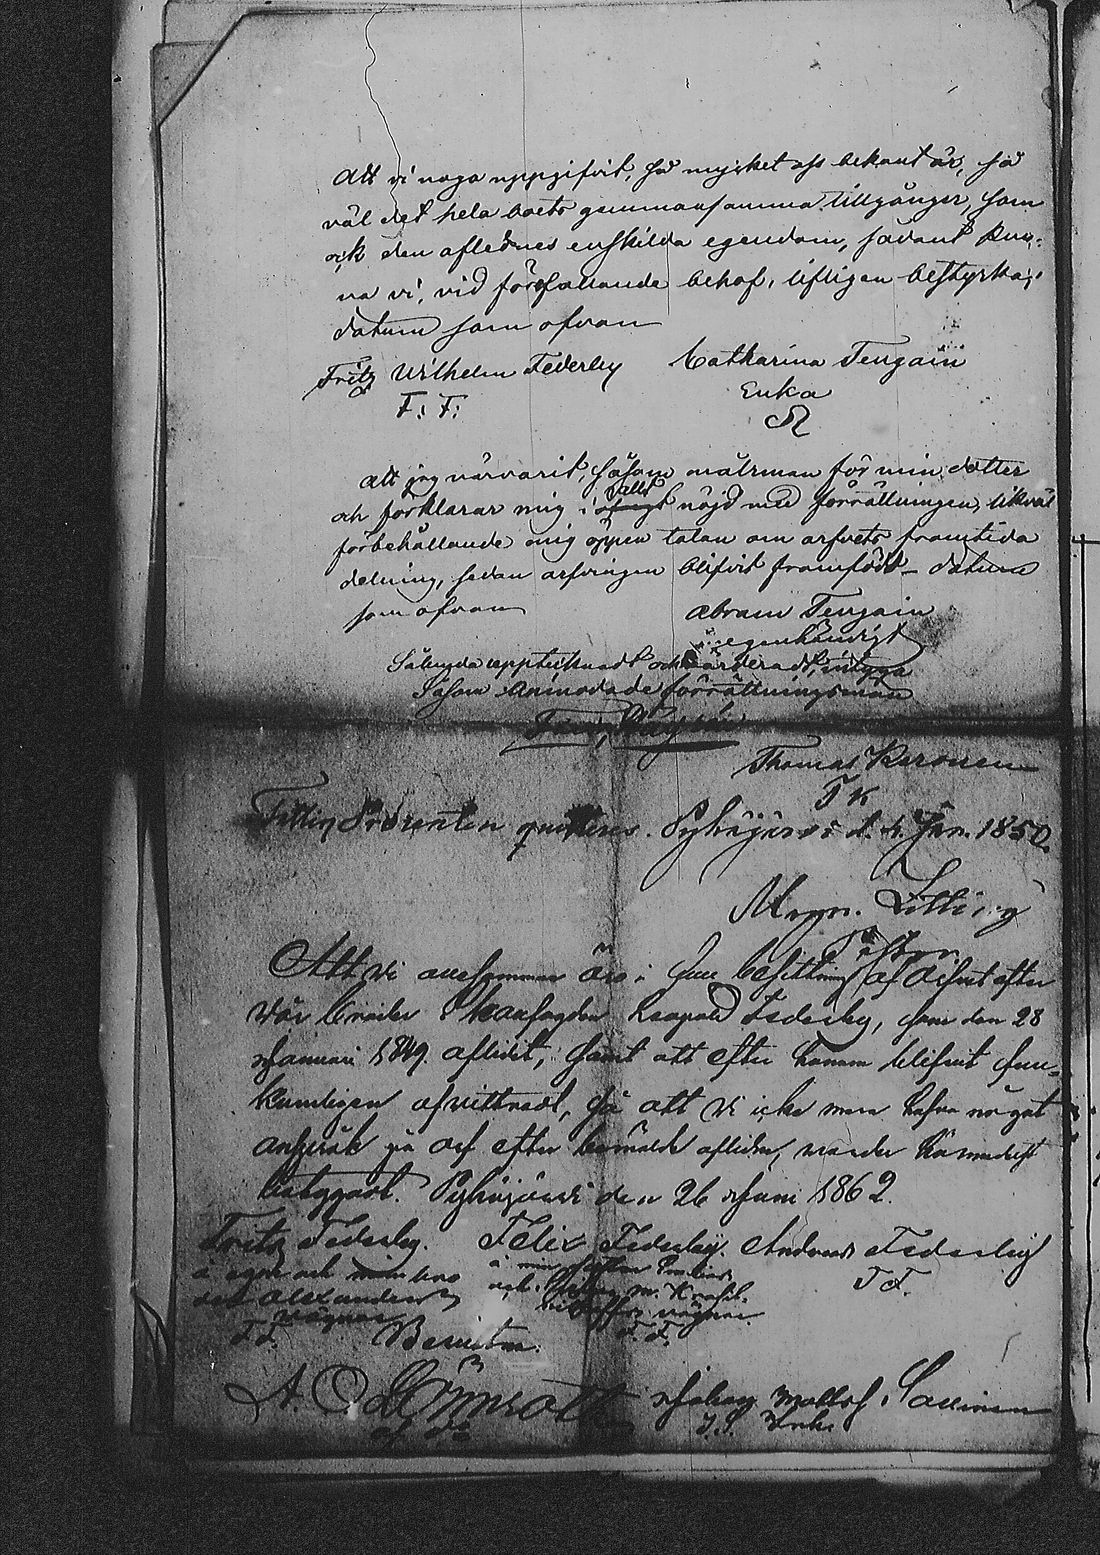 Att vi noga uppgifvit, så mycket oss bekant är, så
väl det hela boets gemmensamma tillgångar, som
ock den aflednes enskilda egendom, sådant kun-
na vi, vid förefallande behof, lifligen bestyrka;
datum som ofvan
Fritz Wilhelm Federley Catharina Tengain
F: F: Enka
Att jag närvarit, såsom målsman för min dotter
och förklarar mig i allt nöjd med förrättningen, likväl
förbehållande mig öppen talan om arfvets framtida
delning, sedan arfvingen blifvit framfödt – datum
som ofvan Abram Tengain
egenhändigt
Sålunda upptecknadt och värderadt, intyga
Såsom Anmodade förrättningsmän
Thomas Karonen
T K
Fattig Procenten quitteras. Pyhäjärvi d. 4. Jan. 1850.
Att vi annammat i full besittning af arfvet efter
vår broder Leopold Federley, som den 28
Januari 1849 aflidit, samt att efter honom blifvit
afvittradt, så att vi icke mera hafva något
anspråk på arf efter bemälde afliden, varder härmedelst
betygadt. Pyhäjärvi den 26 Juni 1862.
Fritz Federley. Felix Federley. Andreas Federley
å egna och min bro F F.
der Alexanders
vägnar
F F. Bevittna. F. F.
A. O. Lönnroth Johan Savinen